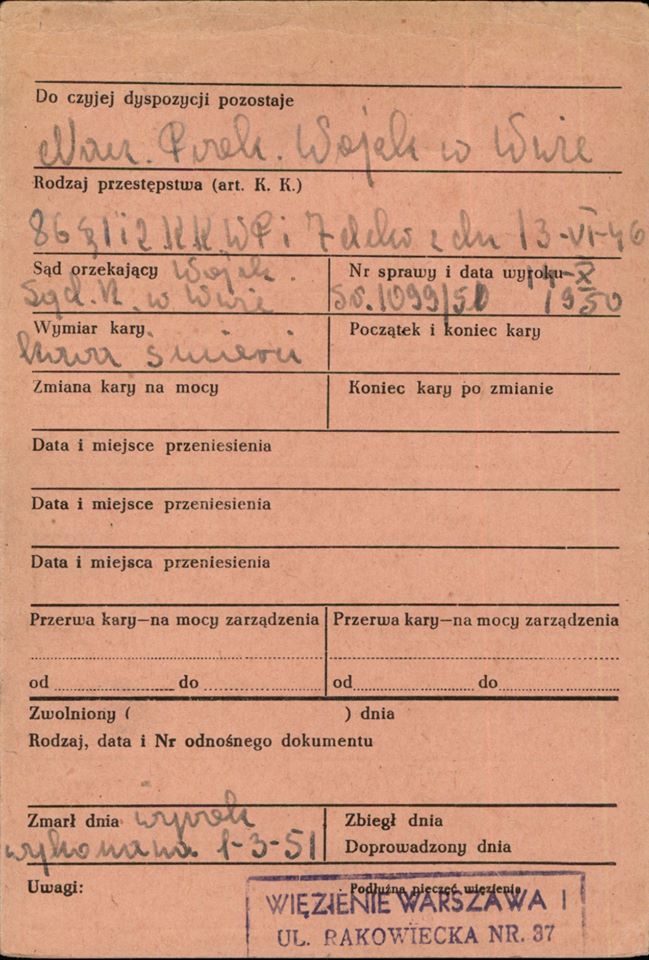 Do czyjej dyspozycji pozostaje
Nacz. Prok. Wojsk w Wwie
Rodzaj przestępstwa (art. K. K.)
86 § 1 i 2 KKWP i 7 dekr z dn 13-VI-46
Sąd orzekający Wojsk.
Sąd. R. w Wwie
Nr sprawy i data wyroku
Sr. 1099/50 14-X 1950
Wymiar kary
kara śmierci
Początek i koniec kary
Zmiana kary na mocy
Koniec kary po zmianie
Data i miejsce przeniesienia
Data i miejsce przeniesienia
Data i miejsca przeniesienia
Przerwa kary—na mocy zarządzenia
od do
Przerwa kary—na mocy zarządzenia
od do
Zwolniony ( ) dnia
Rodzaj, data i Nr odnośnego dokumentu
Zmarł dnia wyrok
wykonano 1-3-51
Zbiegł dnia
Doprowadzony dnia
Uwagi:
Podłużna pieczęć więzienia
WIĘZIENIE WARSZAWA I
UL. RAKOWIECKA NR. 37